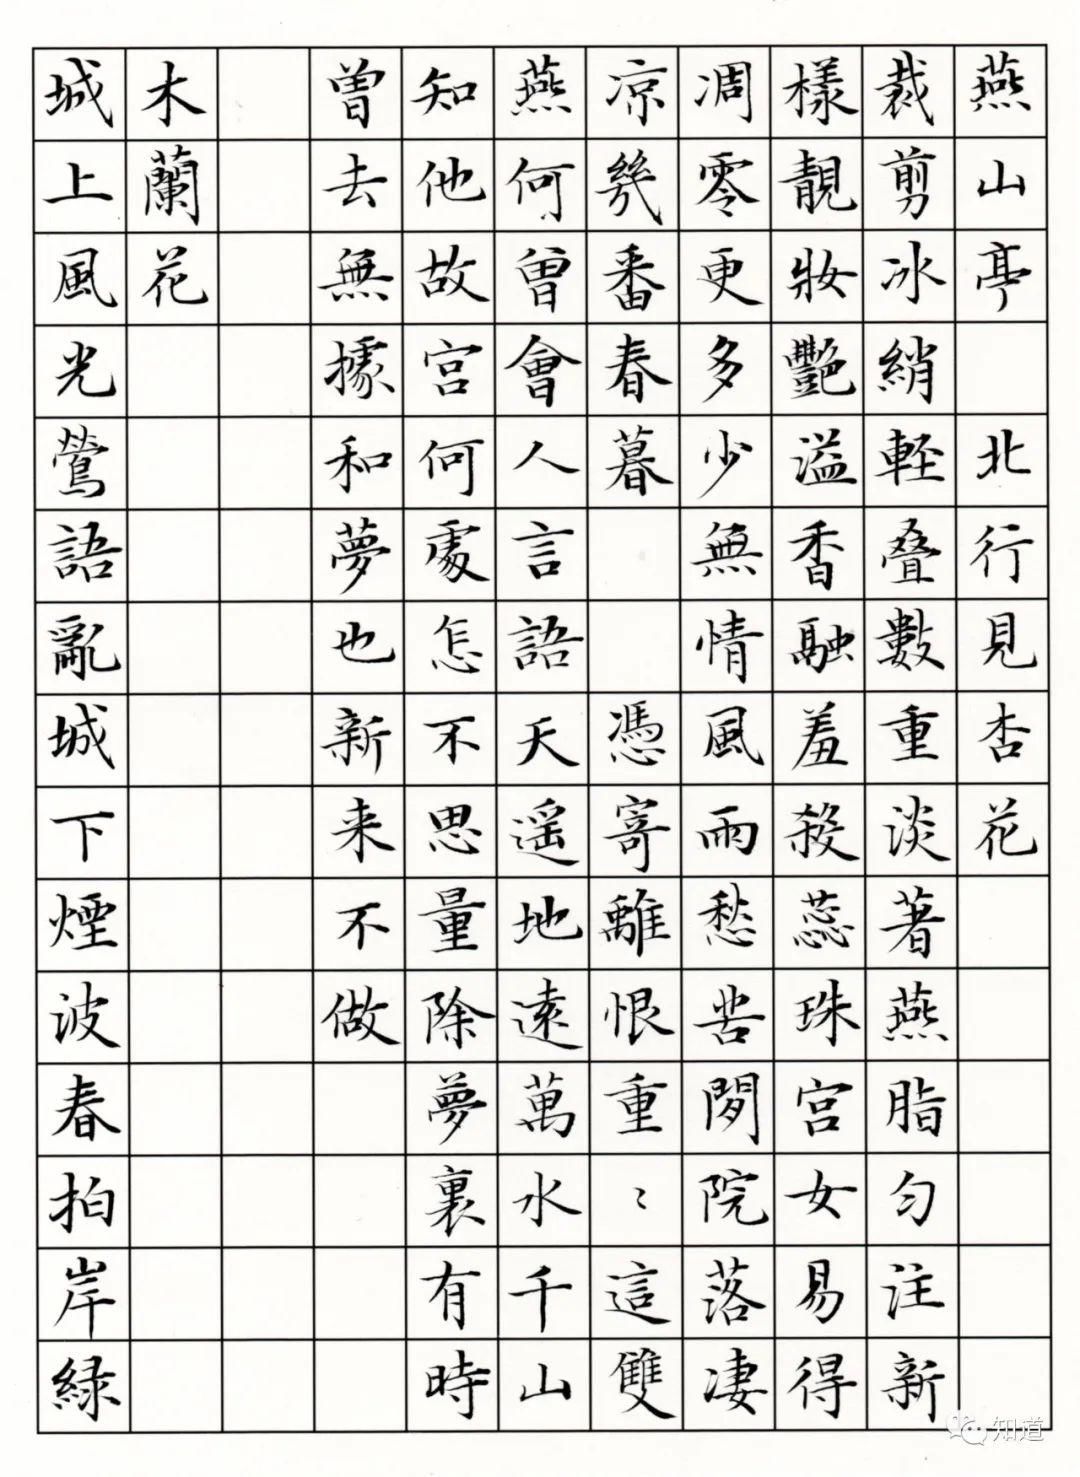 燕山亭 北行見杏花
裁剪冰綃軽叠數重淡著燕脂匀注新
樣靚妝艷溢香融羞殺蕊珠宮女易得
凋零更多少無情風雨愁苦問院落凄
凉幾番春暮 憑寄離恨重〻這雙
燕何曾會人言語天遥地遠萬水千山
知他故宮何處怎不思量除夢裏有時
曾去無據和夢也新来不做
木蘭花
城上風光鶯語亂城下煙波春拍岸緑
知道